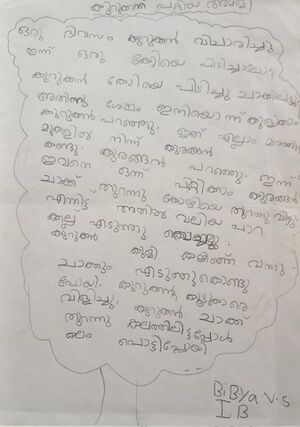 കുറുക്കന് പറ്റിയ അമളി
ഒരു ദിവസം കുറുക്കൻ വിചാരിച്ചു
ഇന്ന് ഒരു കോഴിയെ പിടിച്ചാലോ?
കുറുക്കൻ കോഴിയെ പിടിച്ചു ചാക്കിലിട്ടു
അതിനു ശേഷം ഇനിയൊന്ന് കുളിക്കാം
കുറുക്കൻ പറഞ്ഞു. ഇത് എല്ലാം മരത്തി
മുകളിൽ നിന്ന് കുരങ്ങൻ
കണ്ടു. കുരങ്ങൻ പറഞ്ഞു. ഇന്ന്
ഇവനെ ഒന്ന് പറ്റിക്കാം കുരങ്ങൻ
ചാക്ക് തുറന്നു കോഴിയെ തുറന്നു വിട്ടു.
എന്നിട്ട് അതിൽ വലിയ പാറ
കല്ല് എടുത്തു വെച്ചു.
കുറുക്കൻ കുളി കഴിഞ്ഞ് വന്നു.
ചാക്കും എടുത്തുകൊണ്ടു
പോയി. കുറുക്കന്റെ കൂട്ടുകാരെ
വിളിച്ചു. കുറുക്കൻ ചാക്ക്
തുറന്നു കലത്തിലിട്ടപ്പോൾ
കലം പൊട്ടിപ്പോയി
BiBYa V.S
I B